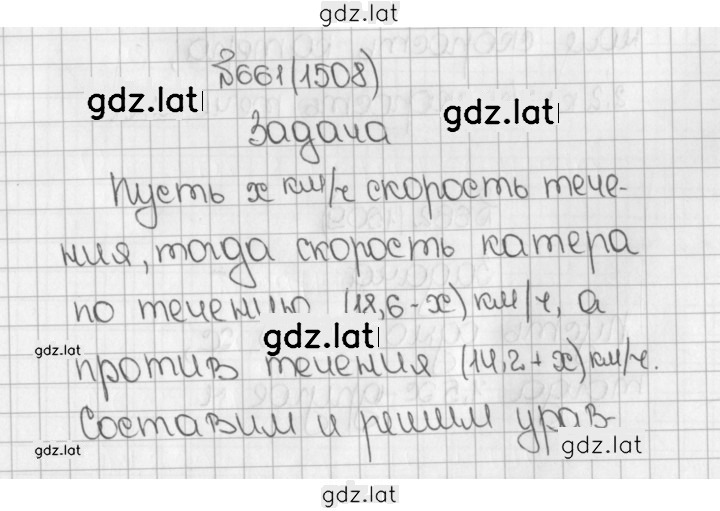 gdz.lat
№661(1508)
gdz.lat
gdz.lat
Задача
Пусть x км/ч скорость тече-
ния, тогда скорость катера
по течению (18,6-x) км/ч, а
gdz.lat
gdz.lat
против течения (14,2+x) км/ч.
Составим и решим урав-
gdz.lat
gdz.lat
gdz.lat